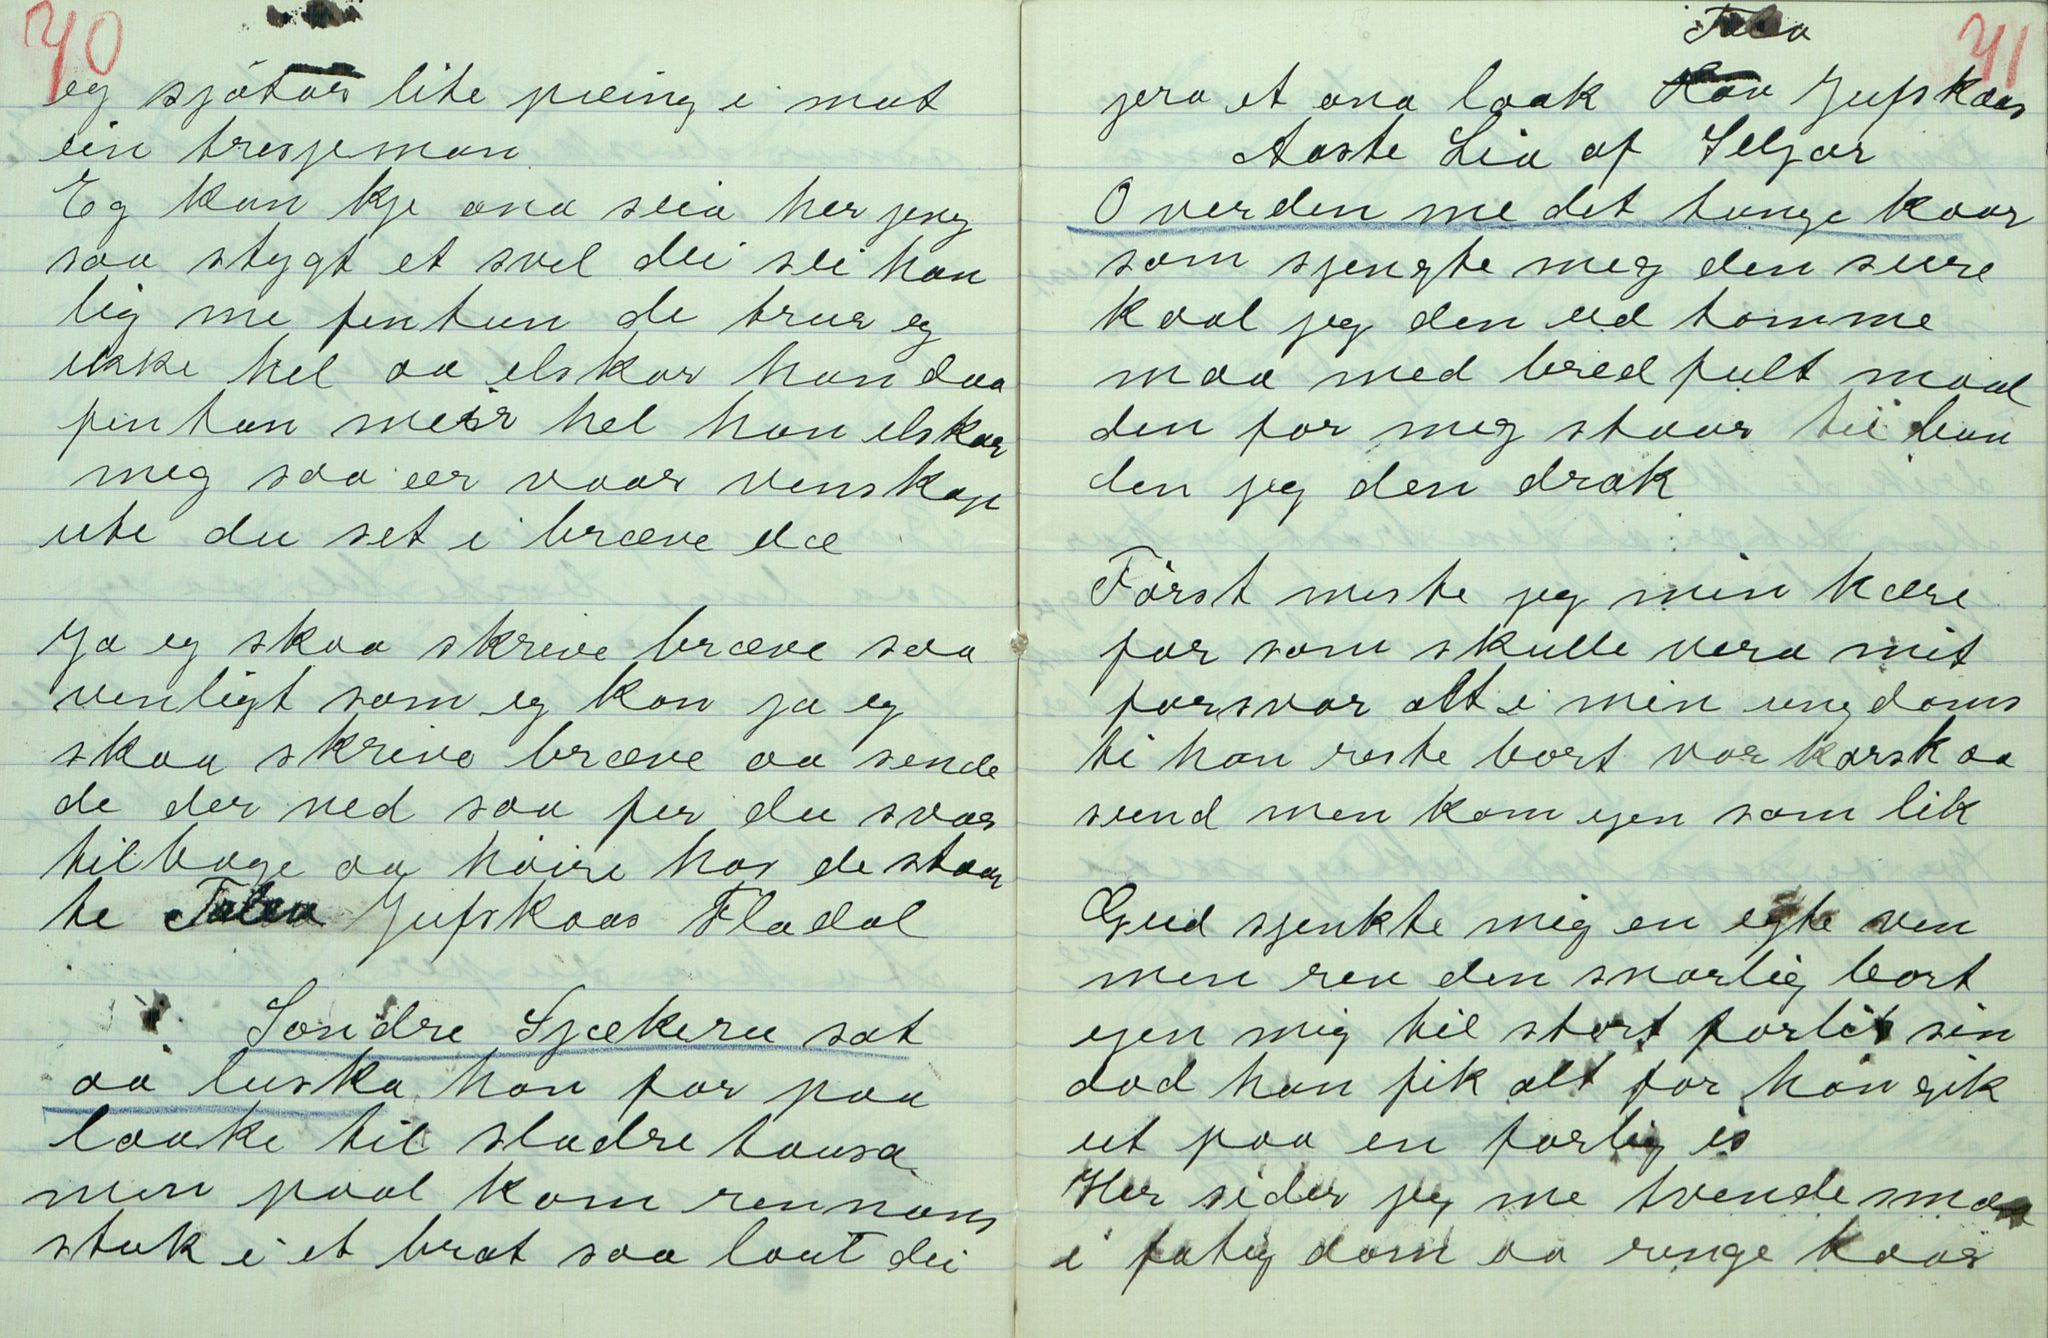 40
eg sjötar lite pæing i mot
ein tresjeman
Eg kan kje ana seia her jeg
saa stygt et svel dei sei han
lig me fentun de trur eg
ikke hel aa elskar han daa
fentun meir hel han elskar
meg saa er vaar venskap
ute du set i bræve dæ
Ja eg skaa skrive bræve saa
venligt som eg kan ja eg
skaa skrive bræve aa sende
de der ned saa fer du svar
tilbage aa höire hos de staar
te Talea Jufskaas Fladal
Sondre Sjækeru sat
aa luska han for paa
laake til sladre tausa
men paal kom rennans
stak i et brat saa laut dei
41
Talea
jera et ana laak Jufskaas
Aaste Lia af Seljor
O verden me det tunge kaar
som sjengte meg den sure
kaal jeg den ud tømme
maa med bred fult maal
den for meg staar til bun
den jeg den drak
Först miste jeg min kære
far som skulle vera mit
forsvar alt i min ungdoms
ti han reste bort var karsk aa
sund men kom igen som lik
Gud sjenkte mig en egte ven
men rev den snarlig bort
igen mig til stort forlis sin
död han fik alt for han gik
ut paa en farlig is
Her sider jeg me tvende smaa
i fatig dom aa ringe kaar